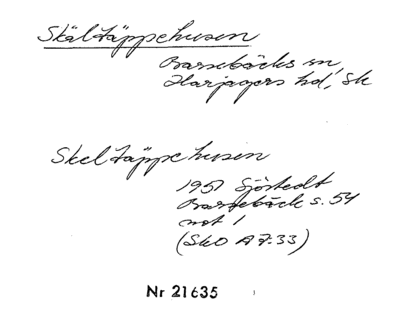 Skältäppehusen
Barsebäcks sn,
Harjagers hd, Sk
Skeltäppehusen
1951 Sjöstedt
Barsebäck s. 54
not 1
(SkO A 7:33)
Nr 21635